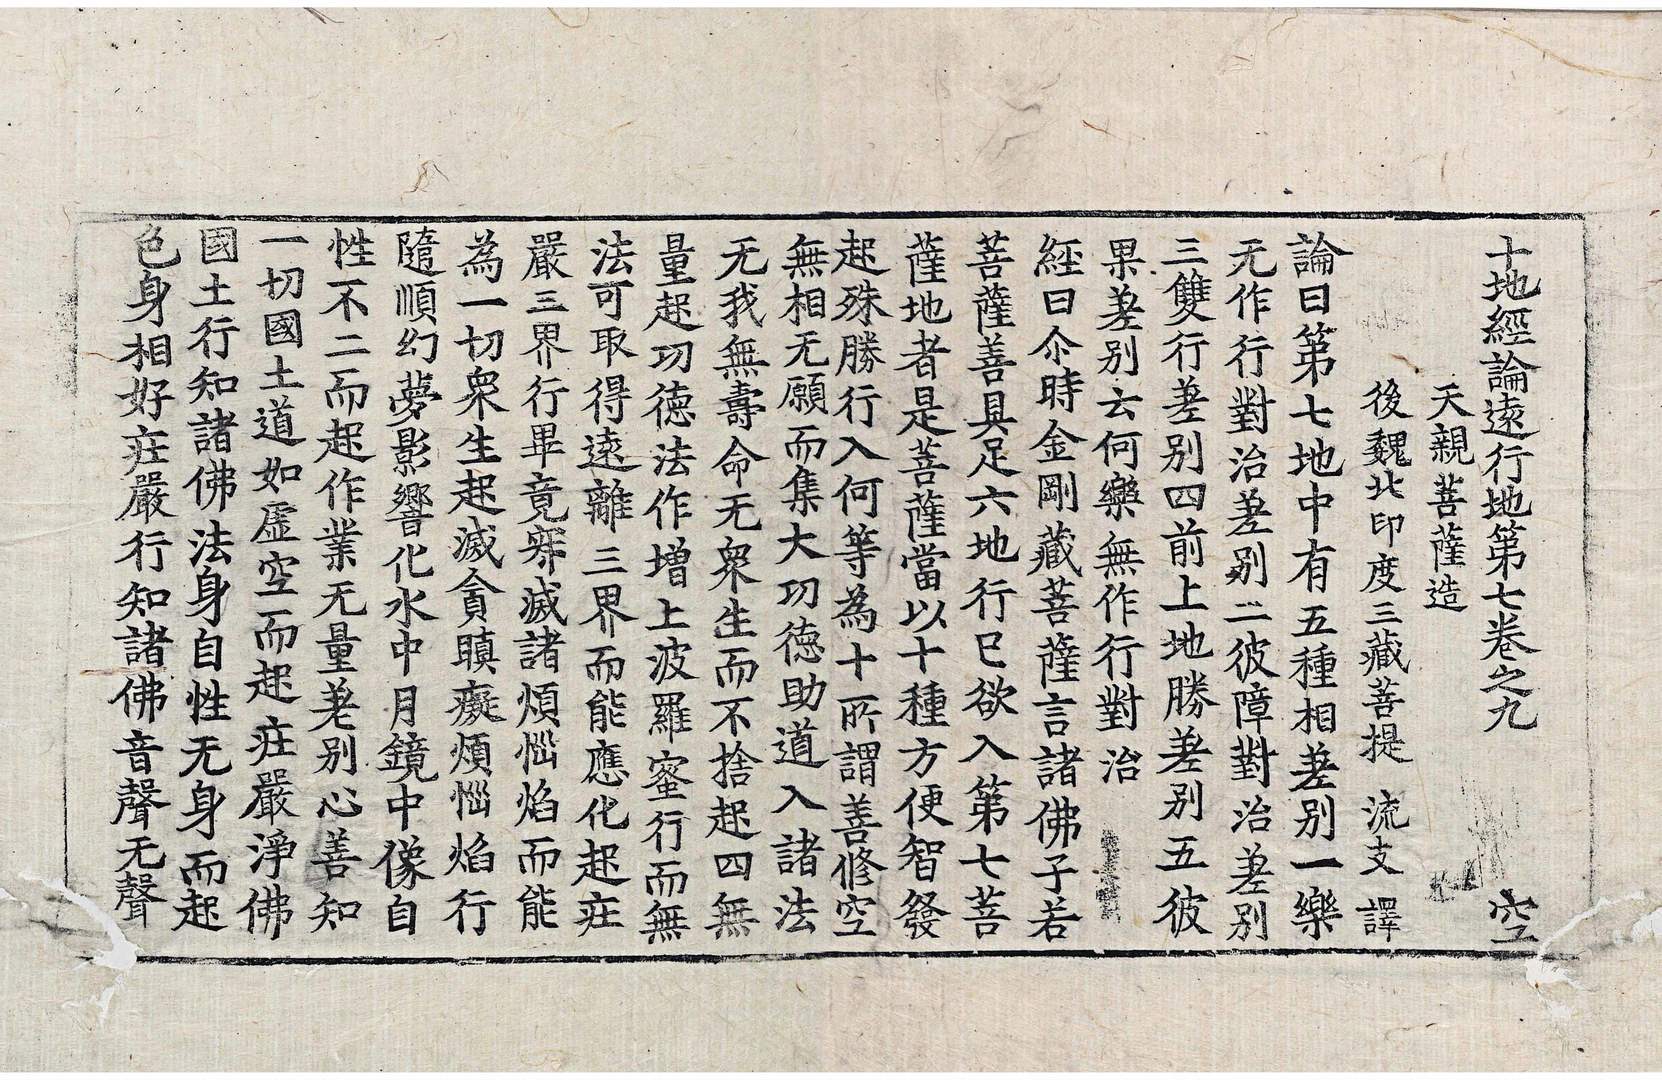 十地經論遠行地第七卷之九 空
天親菩薩造
後魏北印度三藏菩提流支譯
論曰第七地中有五種相差别一樂
无作行對治差别二彼障對治差别
三雙行差别四前上地勝差别五彼
果差别云何樂無作行對治
經曰尒時金剛藏菩薩言諸佛子若
菩薩善具足六地行已欲入第七菩
薩地者是菩薩當以十種方便智發
起殊勝行入何等為十所謂善修空
無相无願而集大功德助道入諸法
无我無壽命无衆生而不捨起四無
量起功德法作增上波羅蜜行而無
法可取得遠離三界而能應化起莊
嚴三界行畢竟寂滅諸煩惱焰而能
為一切衆生起滅貪瞋癡煩惱焰行
隨順幻夢影響化水中月鏡中像自
性不二而起作業无量差别心善知
一切國土道如虛空而起莊嚴淨佛
國土行知諸佛法身自性无身而起
色身相好莊嚴行知諸佛音聲无聲